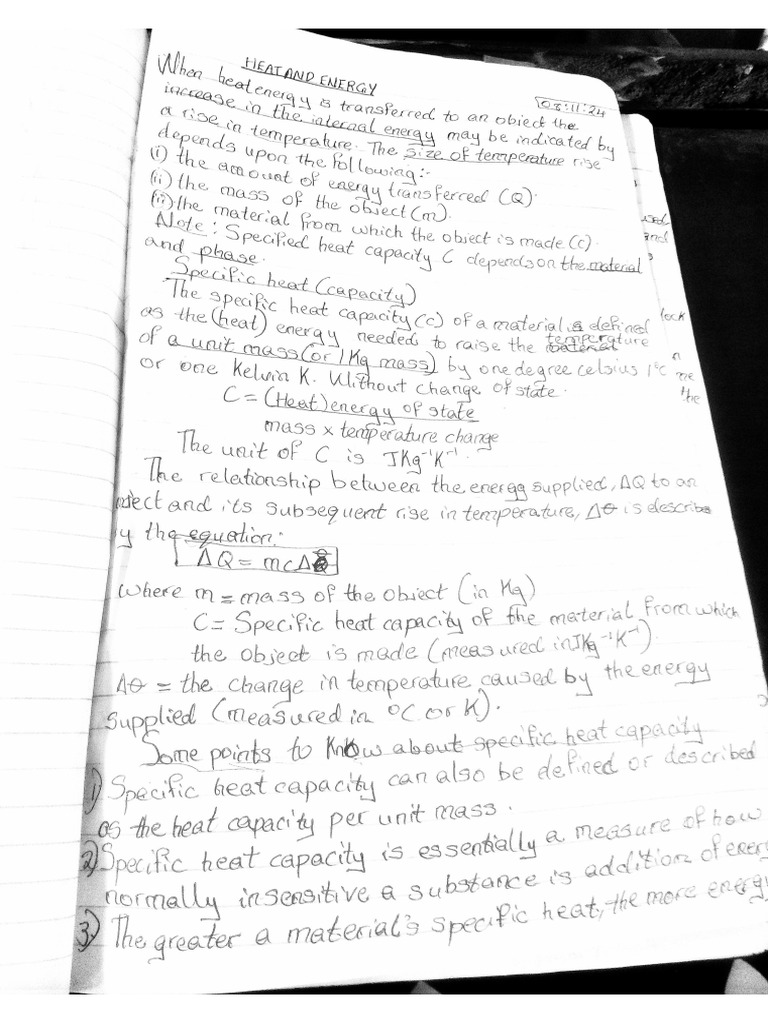 HEAT AND ENERGY
08:11:24
When heat energy is transferred to an object the
increase in the internal energy may be indicated by
a rise in temperature. The size of temperature rise
depends upon the following:-
(i) the amount of energy transferred (Q).
(ii) the mass of the object (m).
(iii) the material from which the object is made (c).
Note: Specified heat capacity C depends on the material
and phase.
Specific heat (capacity)
The specific heat capacity (c) of a material is defined
as the (heat) energy needed to raise the temperature
of a unit mass (or 1Kg mass) by one degree celsius 1°C
or one Kelvin K. Without change of state.
C = (Heat) energy of state
mass x temperature change
The unit of C is JKg⁻¹K⁻¹.
The relationship between the energy supplied, ΔQ to an
object and its subsequent rise in temperature, Δθ is describ
y the equation:
ΔQ = mcΔθ
where m = mass of the object (in Kg)
C = Specific heat capacity of the material from which
the object is made (measured in JKg⁻¹K⁻¹).
Δθ = the change in temperature caused by the energy
supplied (measured in °C or K).
Some points to Know about specific heat capacity
1) Specific heat capacity can also be defined or described
as the heat capacity per unit mass.
2) Specific heat capacity is essentially a measure of how
normally insensitive a substance is addition of energ
3.) The greater a material's specific heat, the more energy